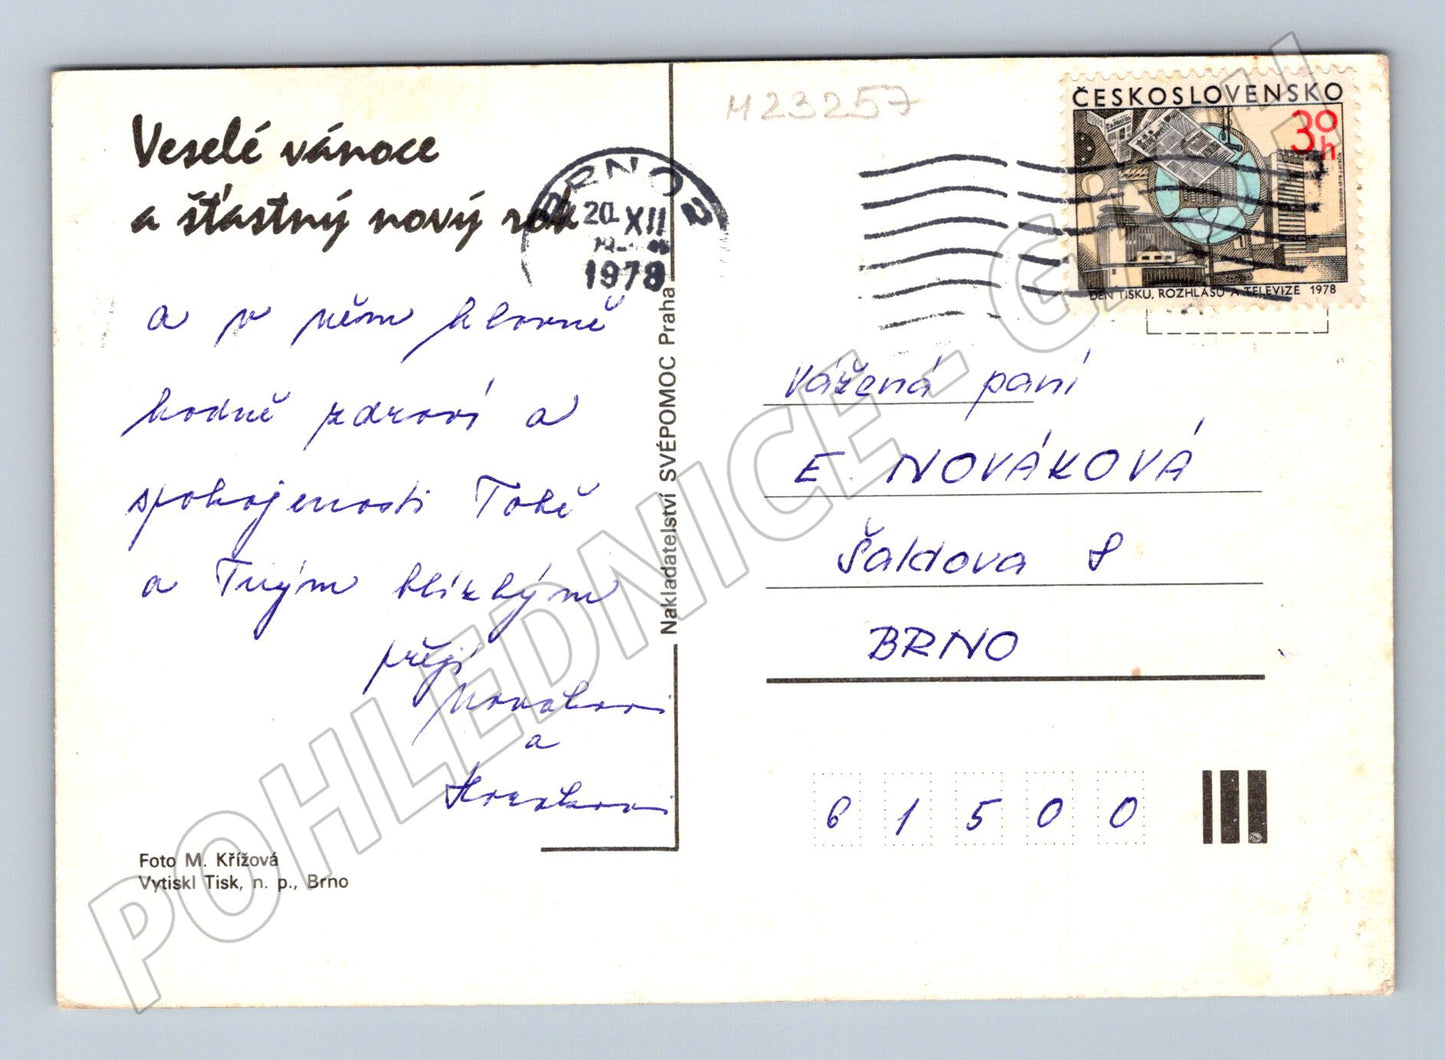 Veselé vánoce
a šťastný nový rok
a v něm hlavně
hodně zdraví a
spokojenosti Tobě
a Tvým blízkým
přejí
Novákovi
a
Foto M. Křížová
Vytiskl Tisk, n. p., Brno
Nakladatelství SVÉPOMOC Praha
BRNO 2
20. XII
1978
M23257
ČESKOSLOVENSKO
30h
DEN TISKU, ROZHLASU A TELEVIZE 1978
Vážená paní
E. NOVÁKOVÁ
Šaldova 8
BRNO
61500
POHLEDNICE - G